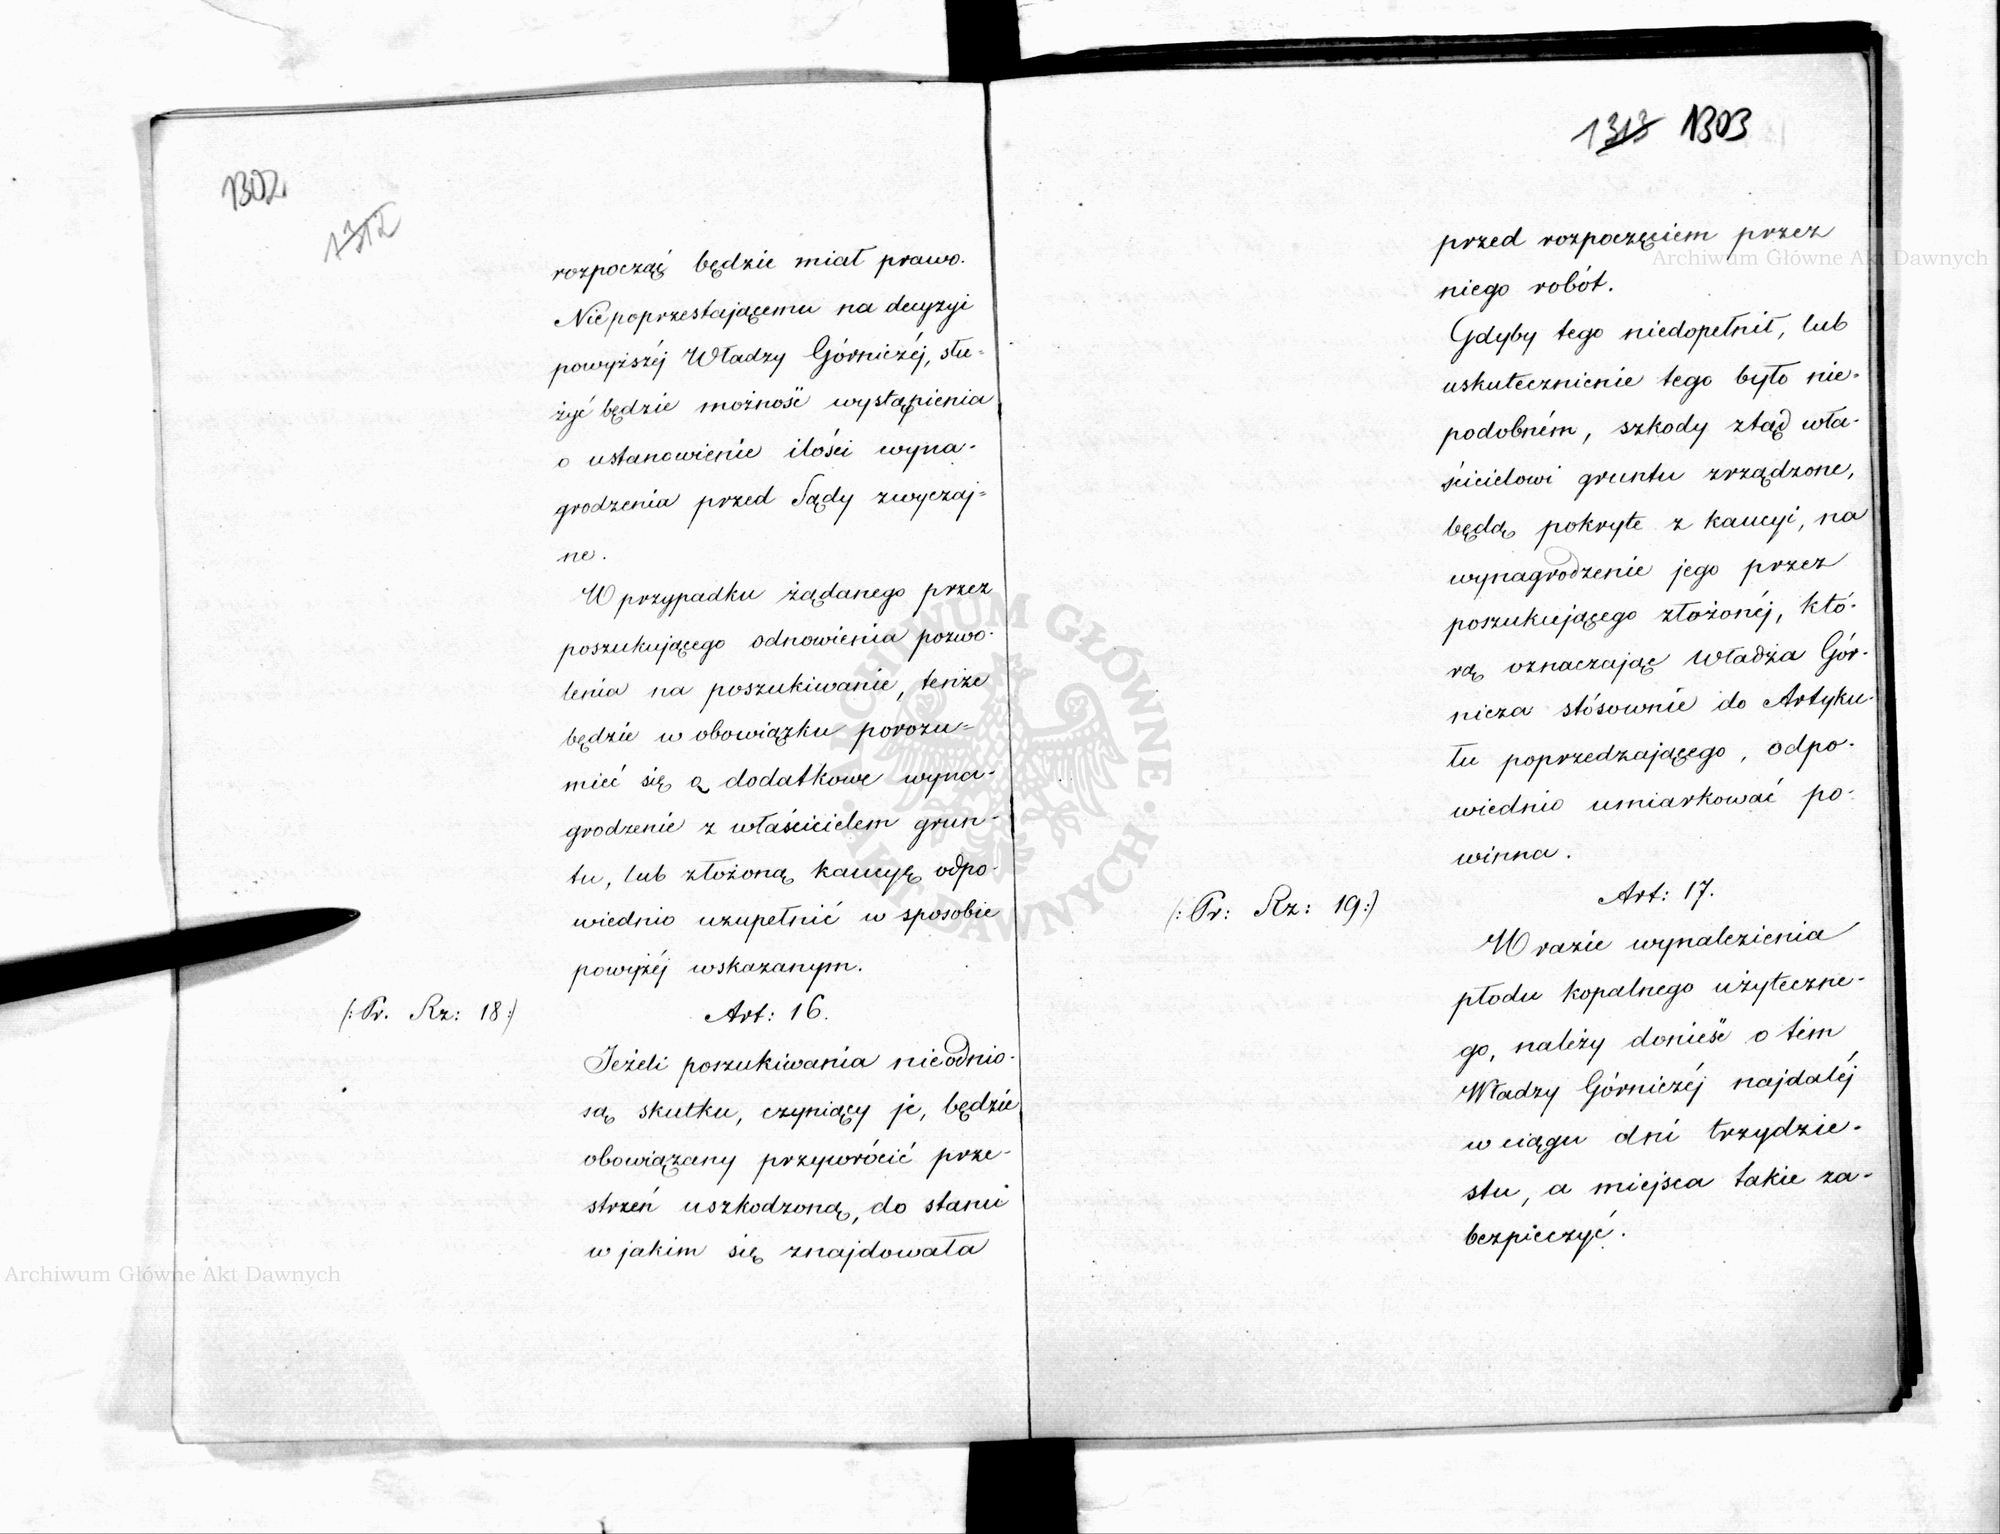 1302
1312
rozpocząć będzie miał prawo.
Niepoprzestającemu na decyzyi
powyższéj Władzy Górniczéj, słu-
żyć będzie możność wystąpienia
o ustanowienie ilości wyna-
grodzenia przed Sądy zwyczaj-
ne.
W przypadku żądanego przez
poszukującego odnowienia pozwo-
lenia na poszukiwanie, tenże
będzie w obowiązku porozu-
mieć się o dodatkowe wyna-
grodzenie z właścicielem grun-
tu, lub złożoną kaucyę odpo-
wiednio uzupełnić w sposobie
powyżéj wskazanym.
(: Pr. Rz: 18:)
Art: 16.
Jeżeli poszukiwania nieodnio-
są skutku, czyniący je, będzie
obowiązany przywrócić prze-
strzeń uszkodzoną, do stanu
w jakim się znajdowała
1313 1303
przed rozpoczęciem przez
niego robót.
Gdyby tego niedopełnił, lub
uskutecznienie tego było nie-
podobném, szkody ztąd wła-
ścicielowi gruntu zrządzone,
będą pokryte z kaucyi, na
wynagrodzenie jego przez
poszukującego złożonéj, któ-
rą oznaczając Władza Gór-
nicza stósownie do Artyku-
łu poprzedzającego, odpo-
wiednio umiarkować po-
winna.
(: Pr: Rz: 19:)
Art: 17.
W razie wynalezienia
płodu kopalnego użyteczne-
go, należy donieść o tém
Władzy Górniczéj najdaléj
w ciągu dni trzydzie-
stu, a miejsca takie za-
bezpieczyć.
Archiwum Główne Akt Dawnych
Archiwum Główne Akt Dawnych
ARCHIWUM GŁÓWNE
AKT DAWNYCH